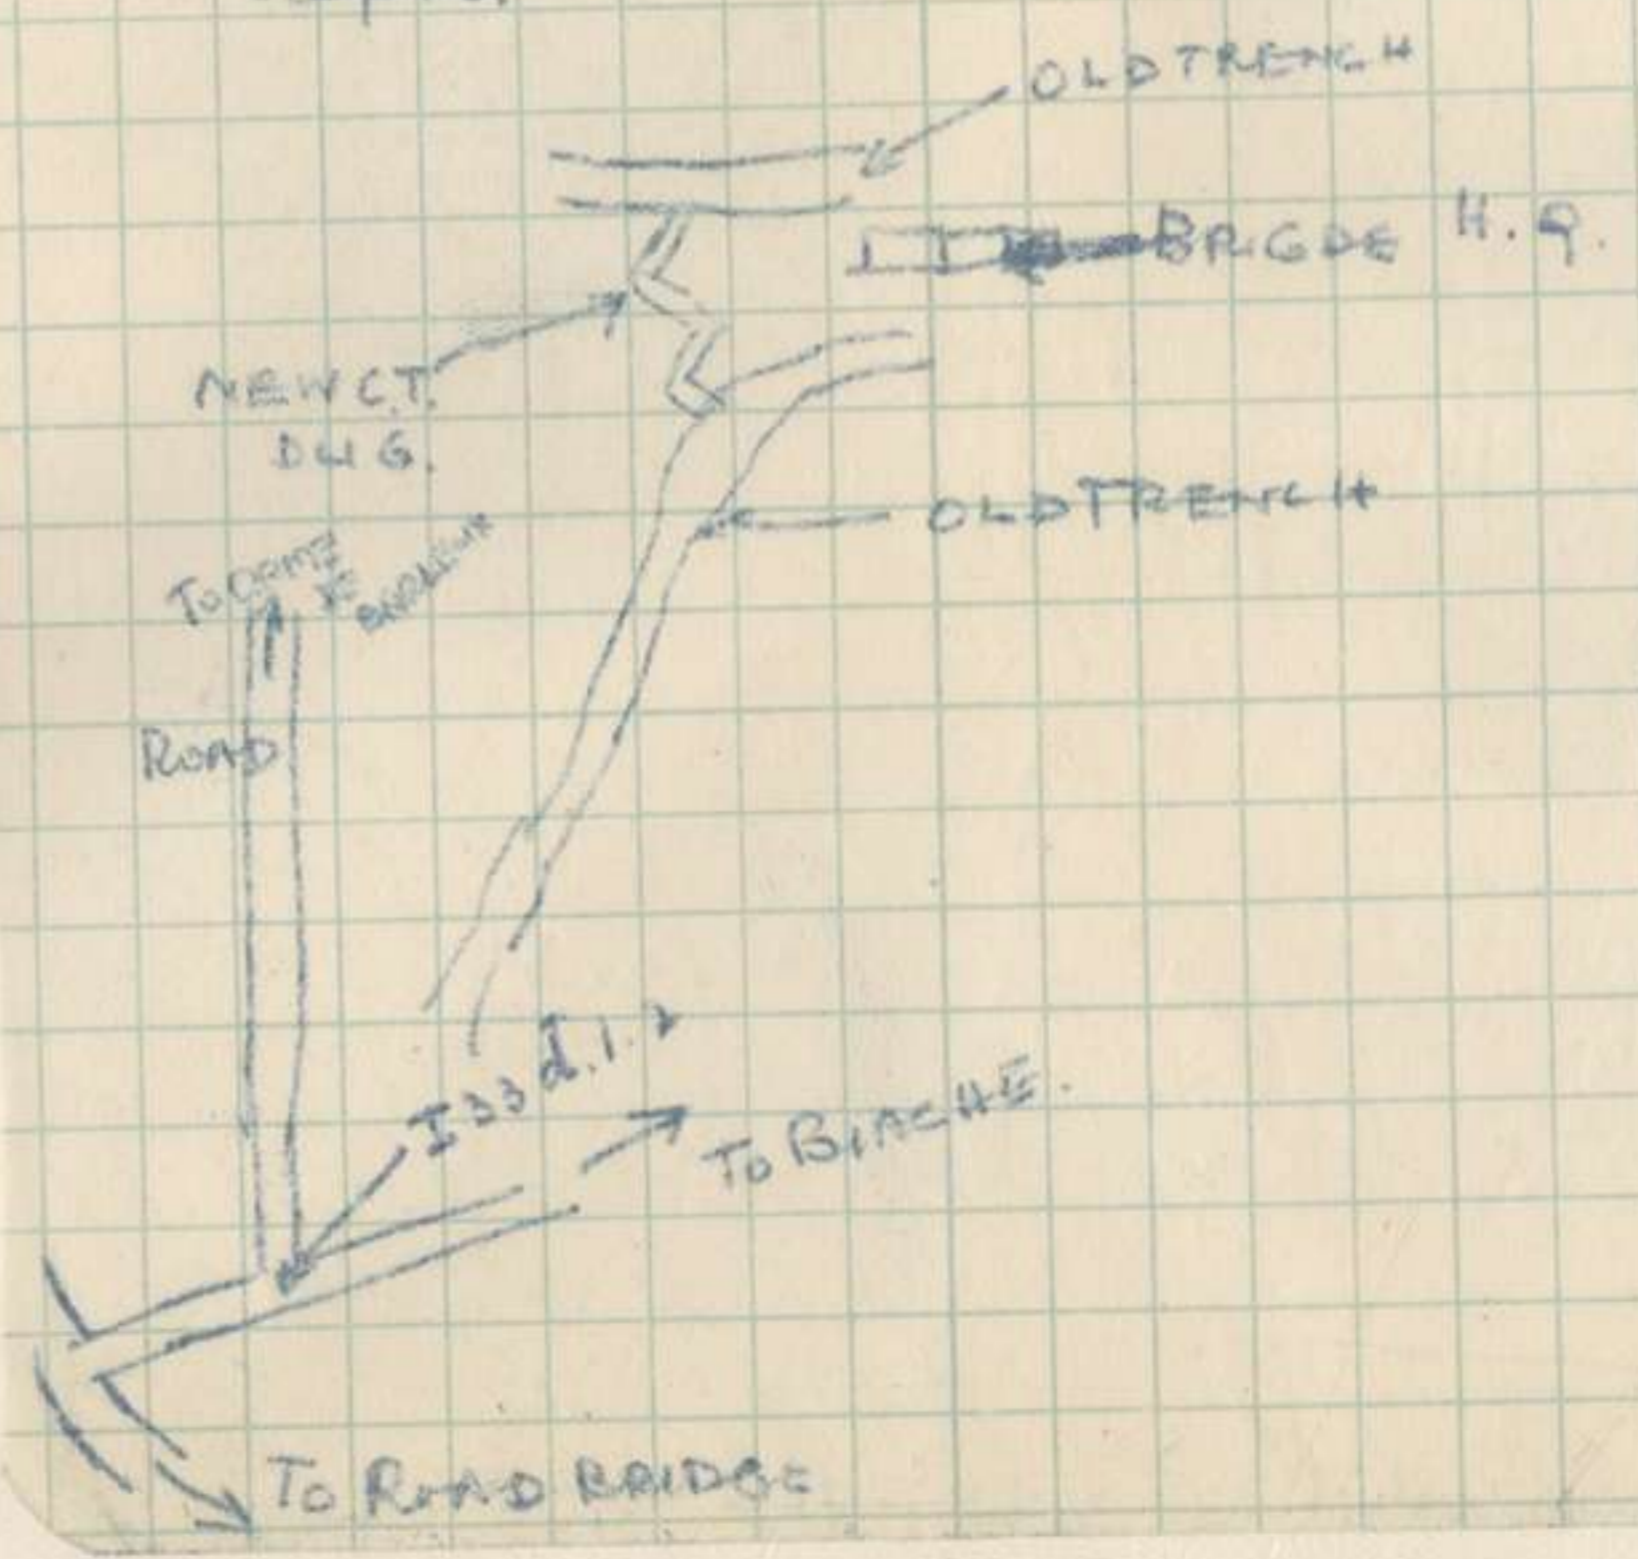 OLD TRENCH
BRIGDE H.Q.
NEW C.T.
DUG.
OLD TRENCH
To
ROAD
I33 d.1.2
To BIACHE.
To ROAD BRIDGE